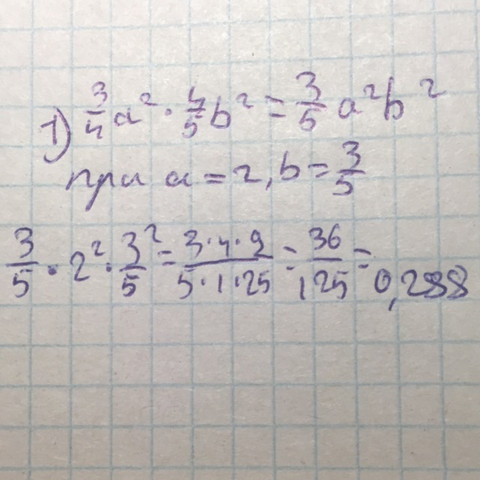 1) 3/4 a² · 4/5 b² = 3/5 a²b²
при a = 2, b = 3/5
3/5 · 2² · 3²/5 = 3·4·9/5·1·25 = 36/125 = 0,288